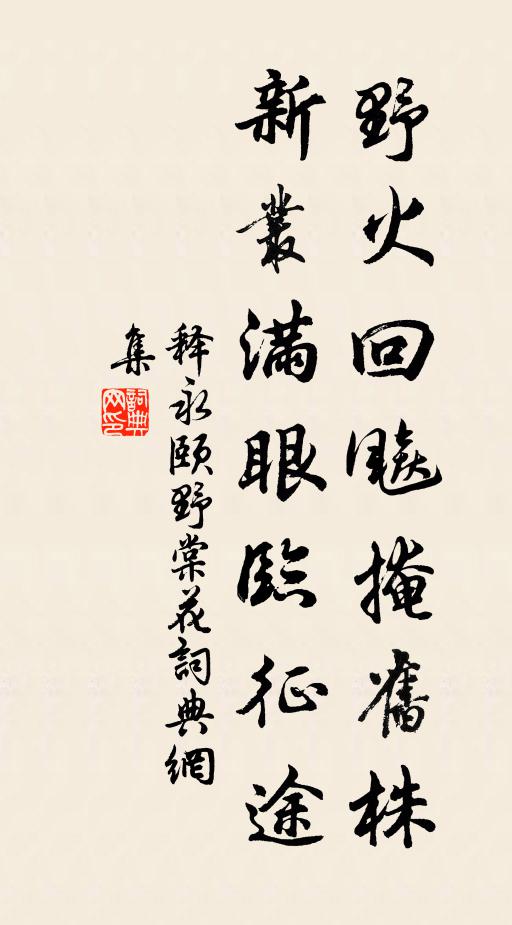 野火回飈掩舊株
新叢滿眼臨征途
释永頤野棠花詞典網
集
詞典网印